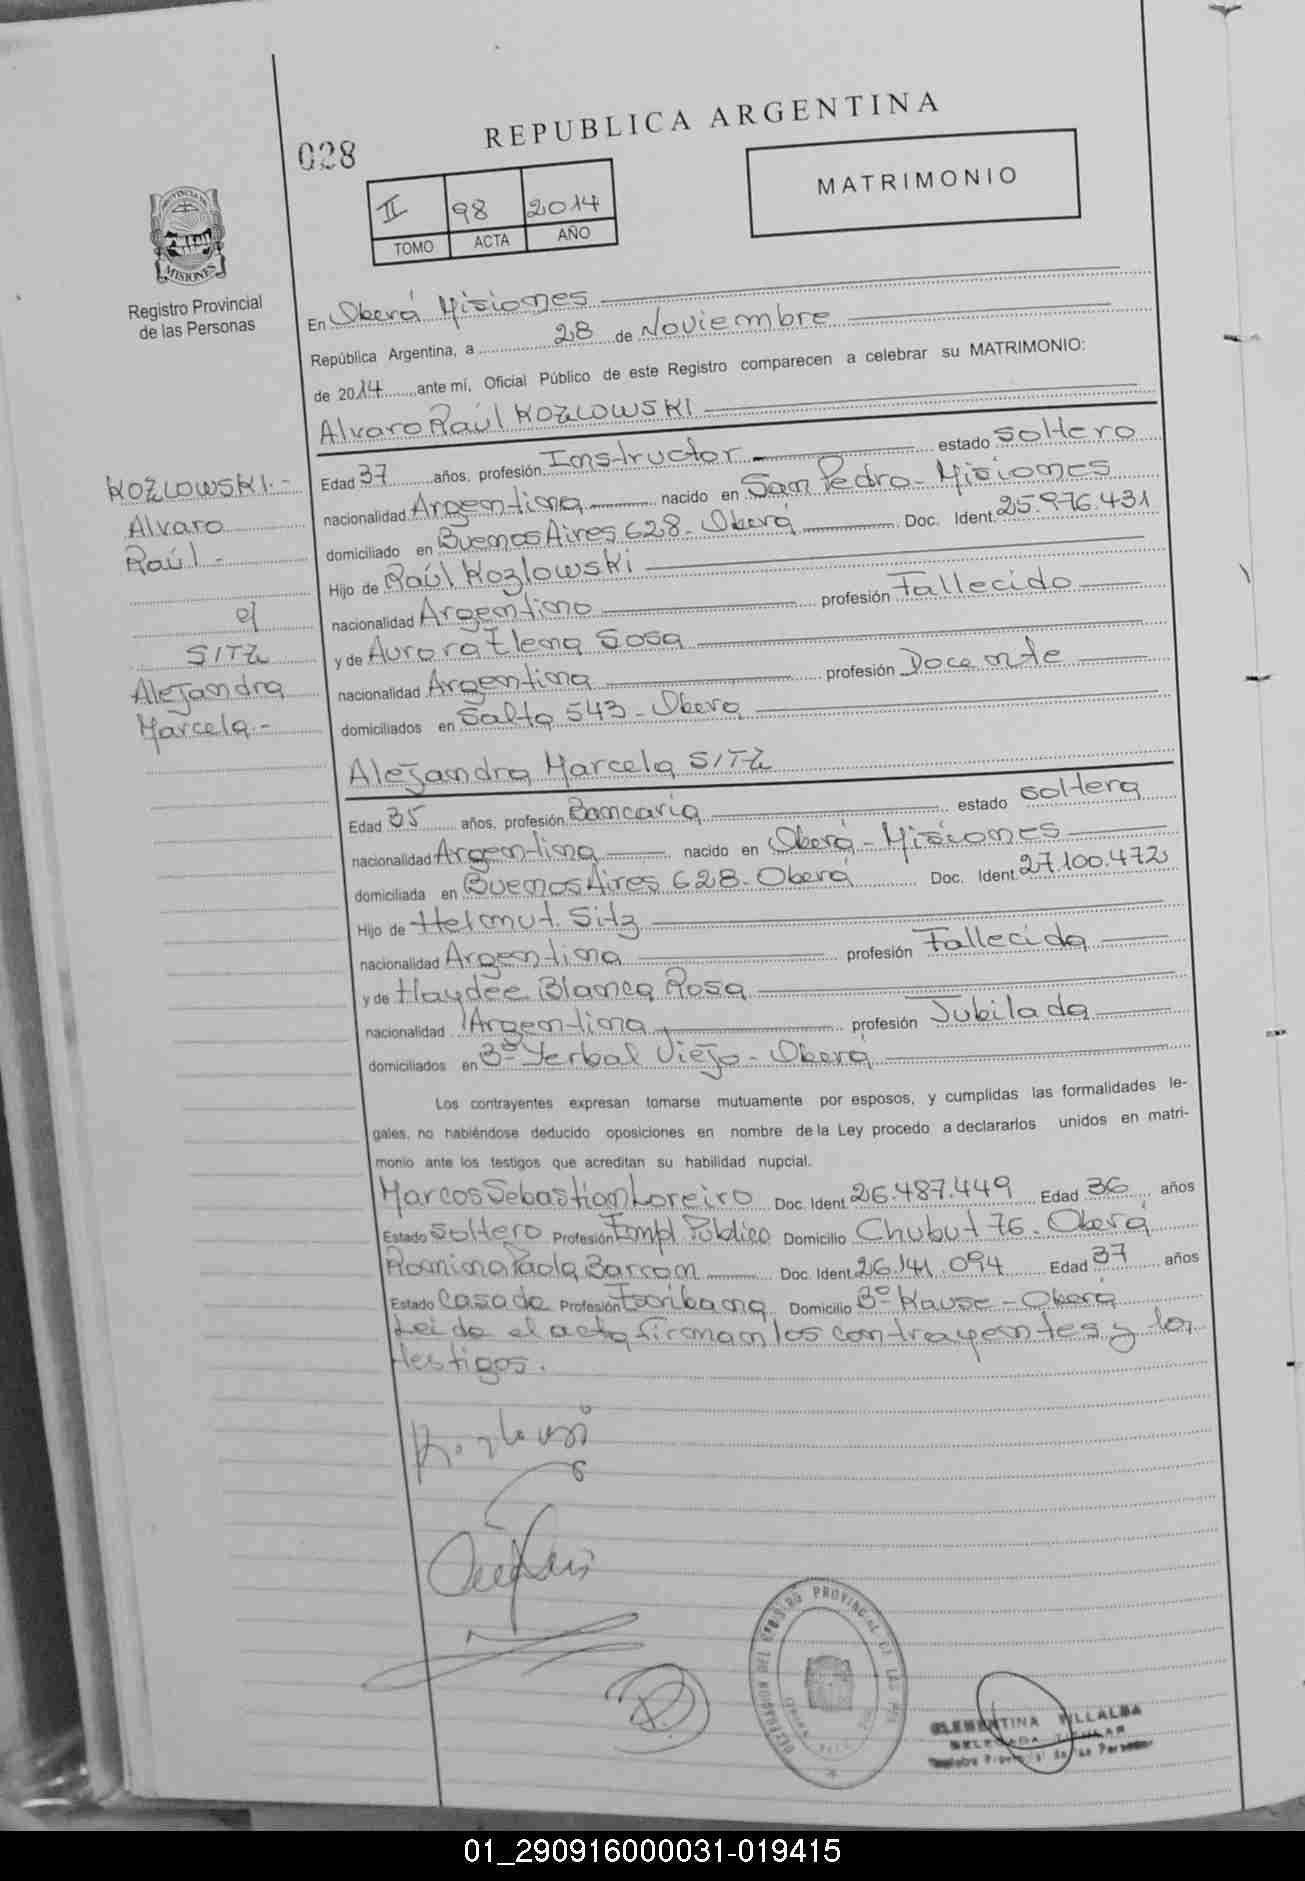 REPUBLICA ARGENTINA
028
II 98 2014
TOMO ACTA AÑO
MATRIMONIO
PROVINCIA DE
MISIONES
Registro Provincial
de las Personas
En Oberá Misiones
República Argentina, a 28 de Noviembre
de 2014 ante mí, Oficial Público de este Registro comparecen a celebrar su MATRIMONIO:
Alvaro Raúl KOZLOWSKI
Edad 37 años, profesión Instructor estado soltero
nacionalidad Argentina nacido en San Pedro - Misiones
domiciliado en Buenos Aires 628 - Oberá Doc. Ident. 25.976.431
Hijo de Raúl Kozlowski
nacionalidad Argentino profesión Fallecido
y de Aurora Elena Sosa
nacionalidad Argentina profesión Docente
domiciliados en Salta 543 - Obera
KOZLOWSKI.-
Alvaro
Raúl -
c/
SITZ
Alejandra
Marcela.-
Alejandra Marcela SITZ
Edad 35 años, profesión Bancaria estado soltera
nacionalidad Argentina nacido en Oberá - Misiones
domiciliada en Buenos Aires 628 - Oberá Doc. Ident. 27.100.472
Hijo de Helmut Sitz
nacionalidad Argentina profesión Fallecida
y de Haydée Blanca Rosa
nacionalidad Argentina profesión Jubilada
domiciliados en 3º Yerbal Viejo - Oberá
Los contrayentes expresan tomarse mutuamente por esposos, y cumplidas las formalidades le-
gales, no habiéndose deducido oposiciones en nombre de la Ley procedo a declararlos unidos en matri-
monio ante los testigos que acreditan su habilidad nupcial.
Marcos Sebastian Loreiro Doc. Ident. 26.487.449 Edad 36 años
Estado soltero Profesión Empl Público Domicilio Chubut 76 - Oberá
Romina Paola Barcon Doc. Ident. 26.141.094 Edad 37 años
Estado Casada Profesión Escribana Domicilio 3º Kause - Oberá
Leida el acta firman los contrayentes y los
testigos.
Kozlowski
DELEGACION DEL REGISTRO PROVINCIAL DE LAS
CLEMENTINA VILLALBA
DELEGADA TITULAR
Registro Provincial de las Personas
01_290916000031-019415